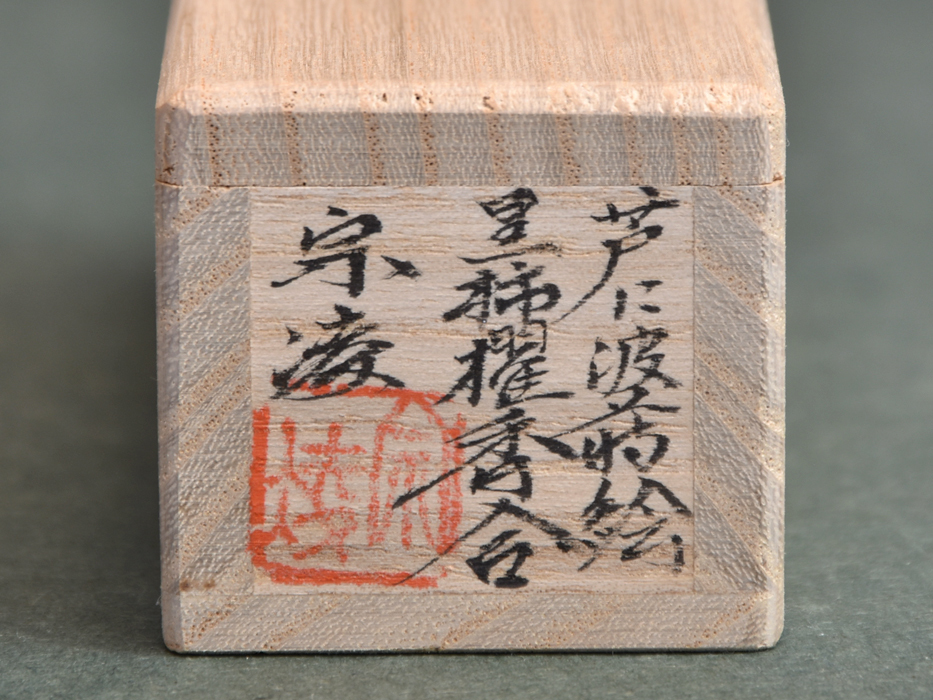 芦に波蒔絵
黒柿櫂香合
宗凌